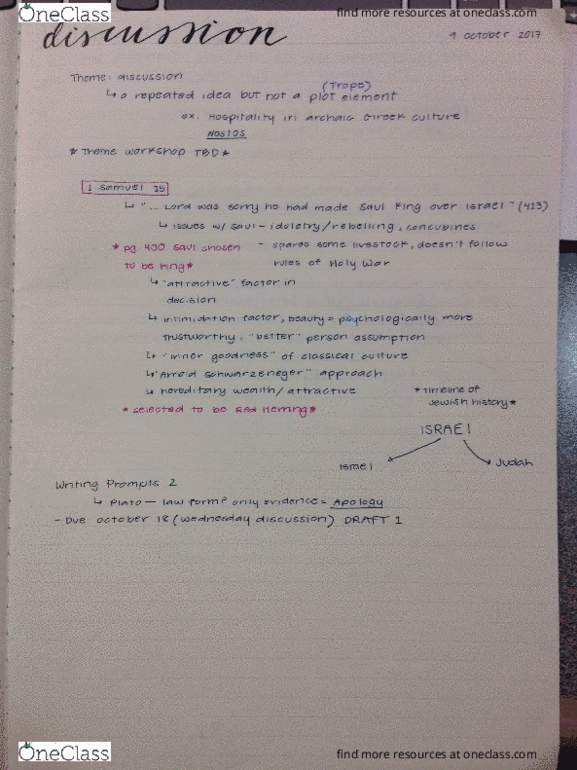 OneClass
find more resources at oneclass.com
discussion
9 October 2017
Theme: discussion
(Trope)
↳ a repeated idea but not a plot element
ex. Hospitality in archaic Greek culture
Nostos
* Theme workshop TBD *
1 Samuel 15
↳ "... Lord was sorry he had made Saul King over Israel" (413)
↳ issues w/ Saul - idoletry/rebelling, concubines
* pg. 400 Saul chosen - spares some livestock, doesn't follow
to be king * rules of Holy War
↳ "attractive" factor in
decision
↳ intimidation factor, beauty = psychologically more
trustworthy, "better" person assumption
↳ "inner goodness" of classical culture
↳ "Arnold Schwarzeneger" approach
↳ hereditary wealth/attractive
* Timeline of
Jewish history *
* selected to be Red Herring *
ISRAEL
Israel
Judah
Writing Prompts 2
↳ Plato — law form? only evidence = Apology
- Due October 18 (wednesday discussion) DRAFT 1
OneClass
find more resources at oneclass.com